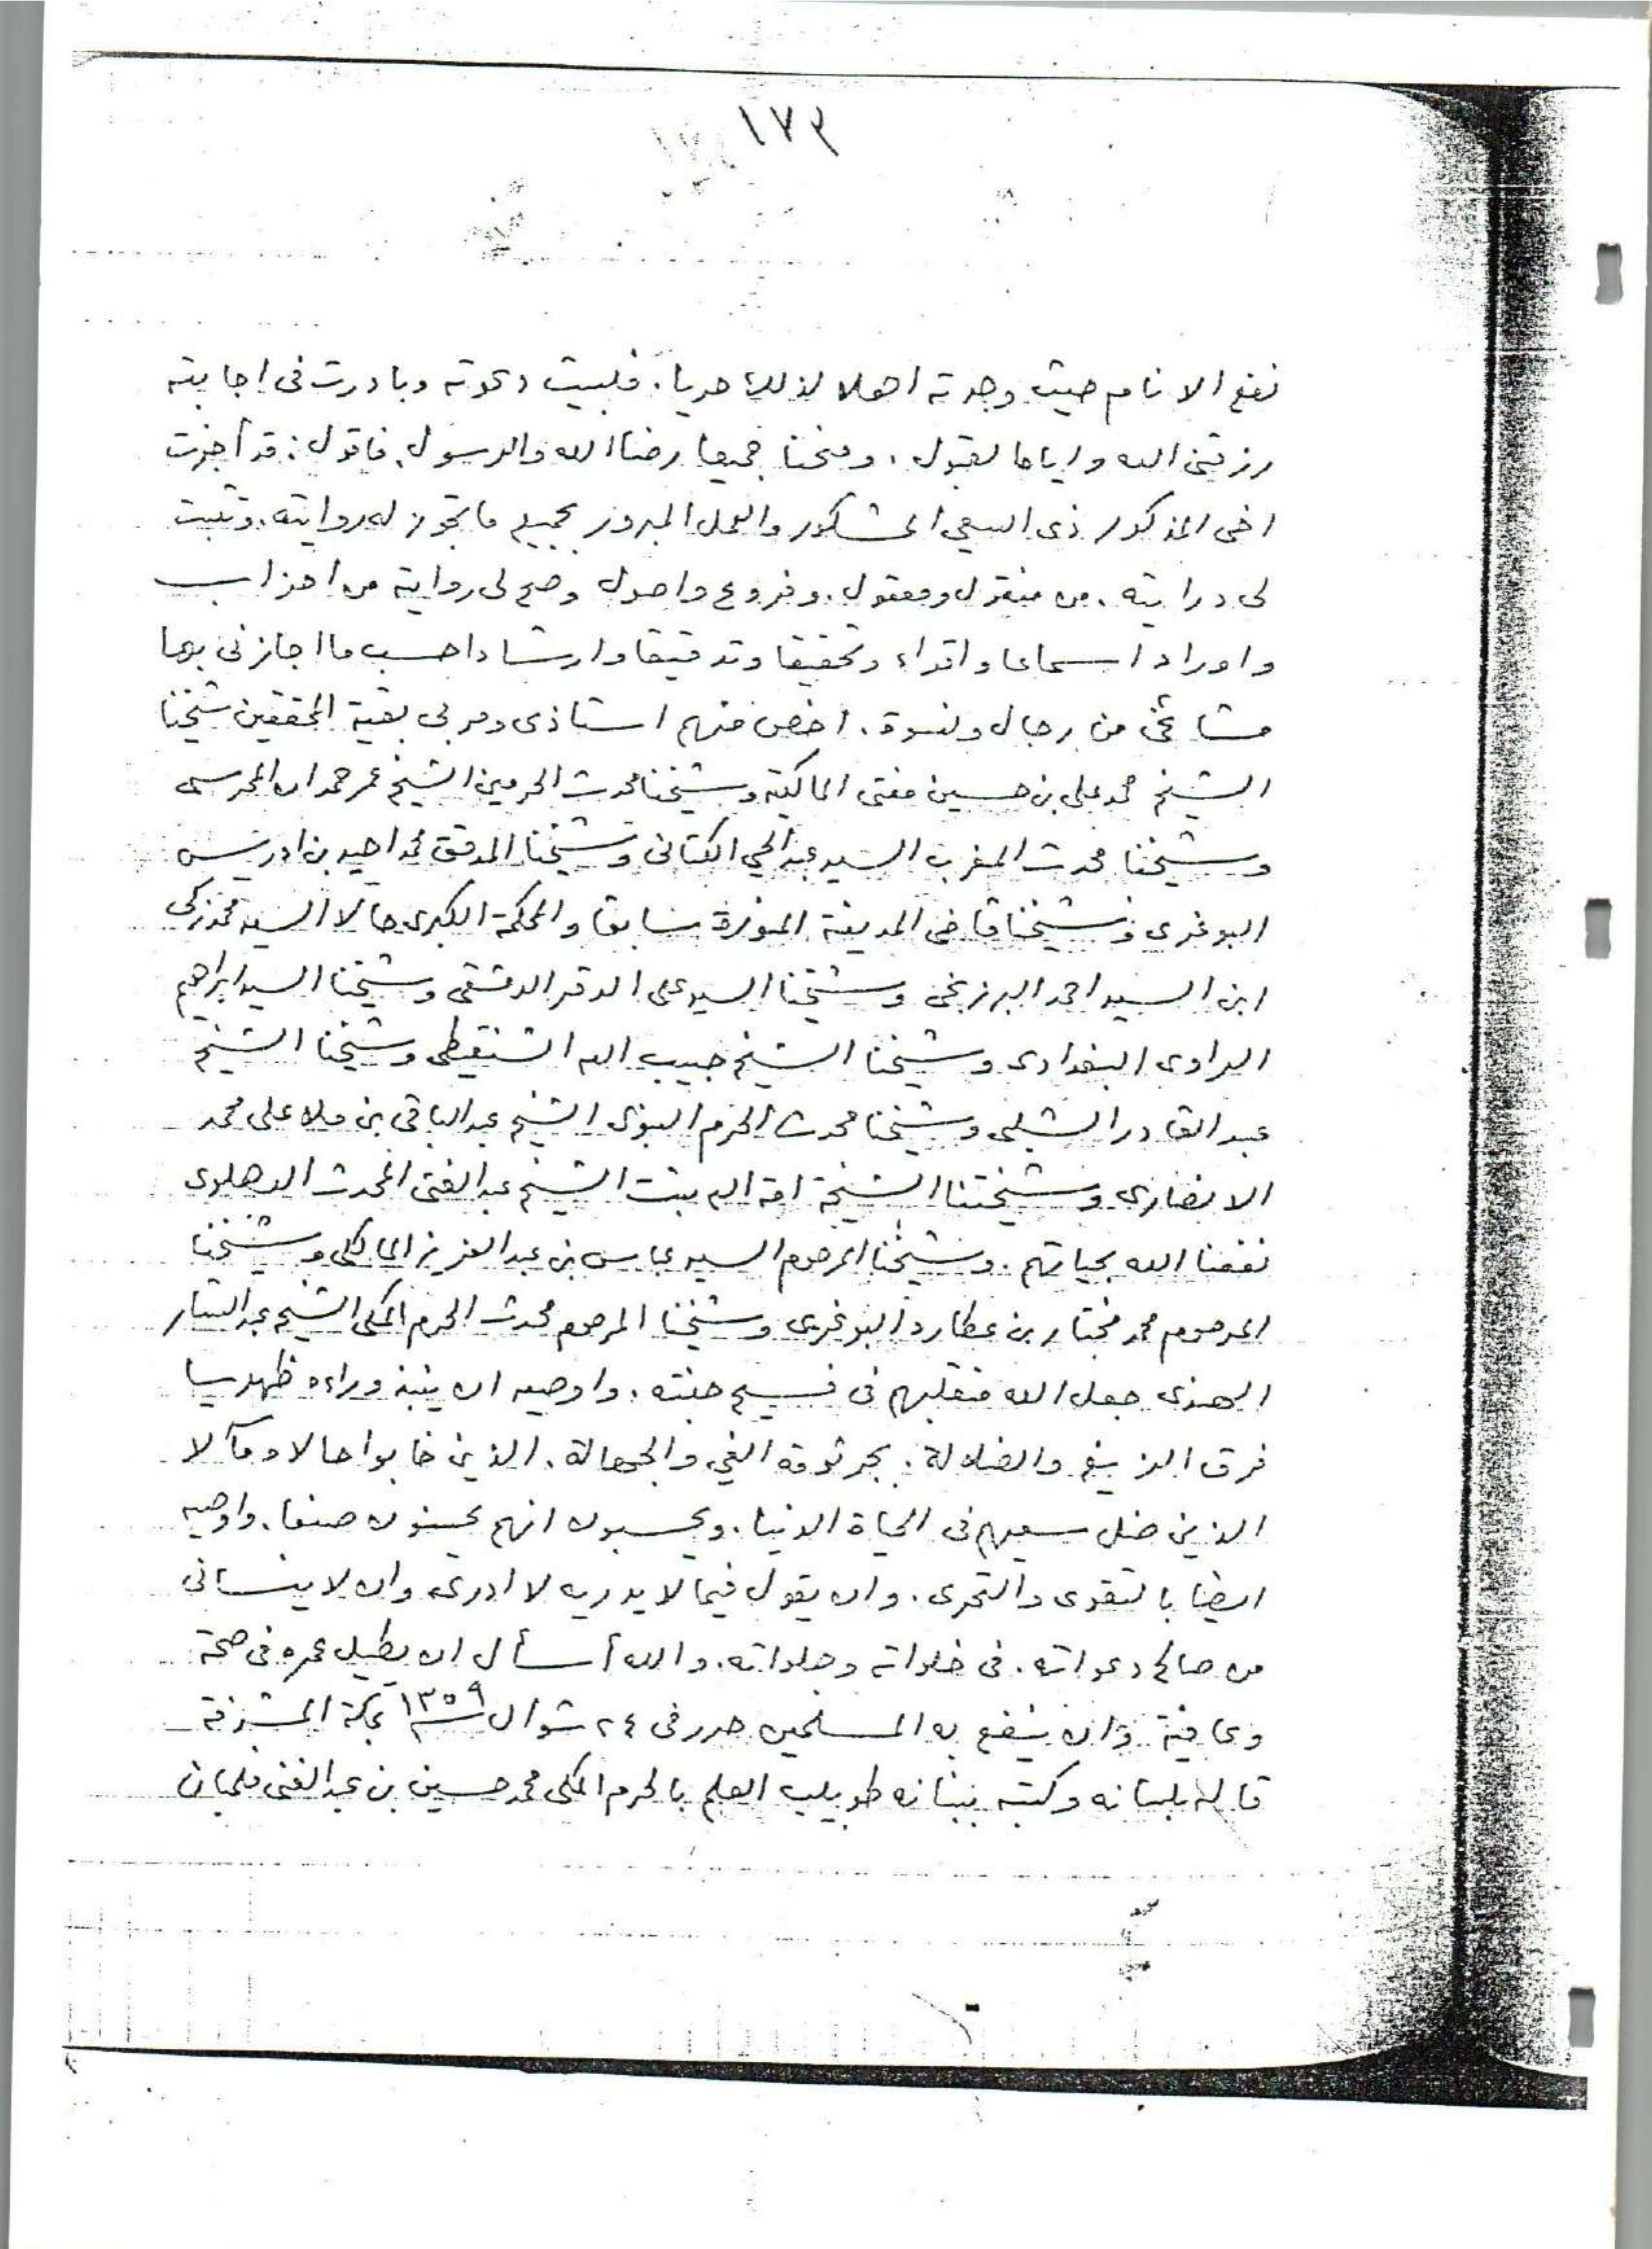 ١٧٣
نفع الانام حيث وجدته اهلا لذلك حريا. فلبيت دعوته وبادرت في اجابته
رزقني الله واياه القبول. ومنحنا جميعا رضاالله والرسول. فاقول: قد أجزت
اخى المذكور ذى السعي المشكور والعمل المبرور بجميع ما تجوز له روايته. وتثبت
لى درايته. من منقول ومعقول. وفروع واصول وصح لى روايته من احزاب
واوراد اسماعا واقراء وتحقيقا وتدقيقا وارشادا حسب ما اجازنى بها
مشائخى من رجال ونسوة. اخص منهم استاذى ومربى بقية المحققين شيخنا
الشيخ محمد على بن حسين مفتى المالكية وشيخنا محدث الحرمين الشيخ عمر حمدان المحرسى
وشيخنا محدث المغرب السيد عبدالحي الكتانى وشيخنا المدقق محمد احيد بن ادريس
البوغرى وشيخنا قاضى المدينة المنورة سابقا والمحكمة الكبرى حالا السيد محمد زكى
ابن السيد احمد البرزنجى وشيخنا السيد على الدقر الدمشقى وشيخنا السيد ابراهيم
الراوى البغدادى وشيخنا الشيخ حبيب الله الشنقيطى وشيخنا الشيخ
عبد القادر الشلبى وشيخنا محدث الحرم النبوى الشيخ عبد الباقى بن ملا على محمد
الانصارى وشيختنا الشيخة امة الله بنت الشيخ عبد الغنى المحدث الدهلوى
نفعنا الله بحياتهم. وشيخنا المرحوم السيد عباس بن عبد العزيز المالكى وشيخنا
المرحوم محمد مختار بن عطارد البوغرى وشيخنا المرحوم محدث الحرم المكى الشيخ عبد الستار
الهندى جعل الله منقلبهم فى فسيح جنته. واوصيه ان ينبذ وراءه ظهريا
فرق الزيغ والضلالة. بجرثومة الغي والجهالة. الذين خابوا حالا ومآلا
الذين ضل سعيهم فى الحياة الدنيا. ويحسبون انهم يحسنون صنعا. واوصيه
ايضا بالتقوى والتحرى. وان يقول فيما لا يدريه لا ادرى وان لا ينسانى
من صالح دعواته. فى خلواته وجلواته. والله أسأل ان يطيل عمره فى صحة
وعافية وان ينفع به المسلمين حرر فى ٢٤ شوال سنة ١٣٥٩ بمكة المشرفة
قاله بلسانه وكتبه ببنانه طويلب العلم بالحرم المكى محمد حسين بن عبد الغنى فلمبان